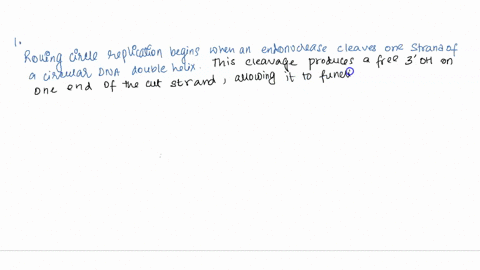 1.
Rolling circle replication begins when an endonuclease cleaves one strand of
a circular DNA double helix. This cleavage produces a free 3' OH on
one end of the cut strand, allowing it to func